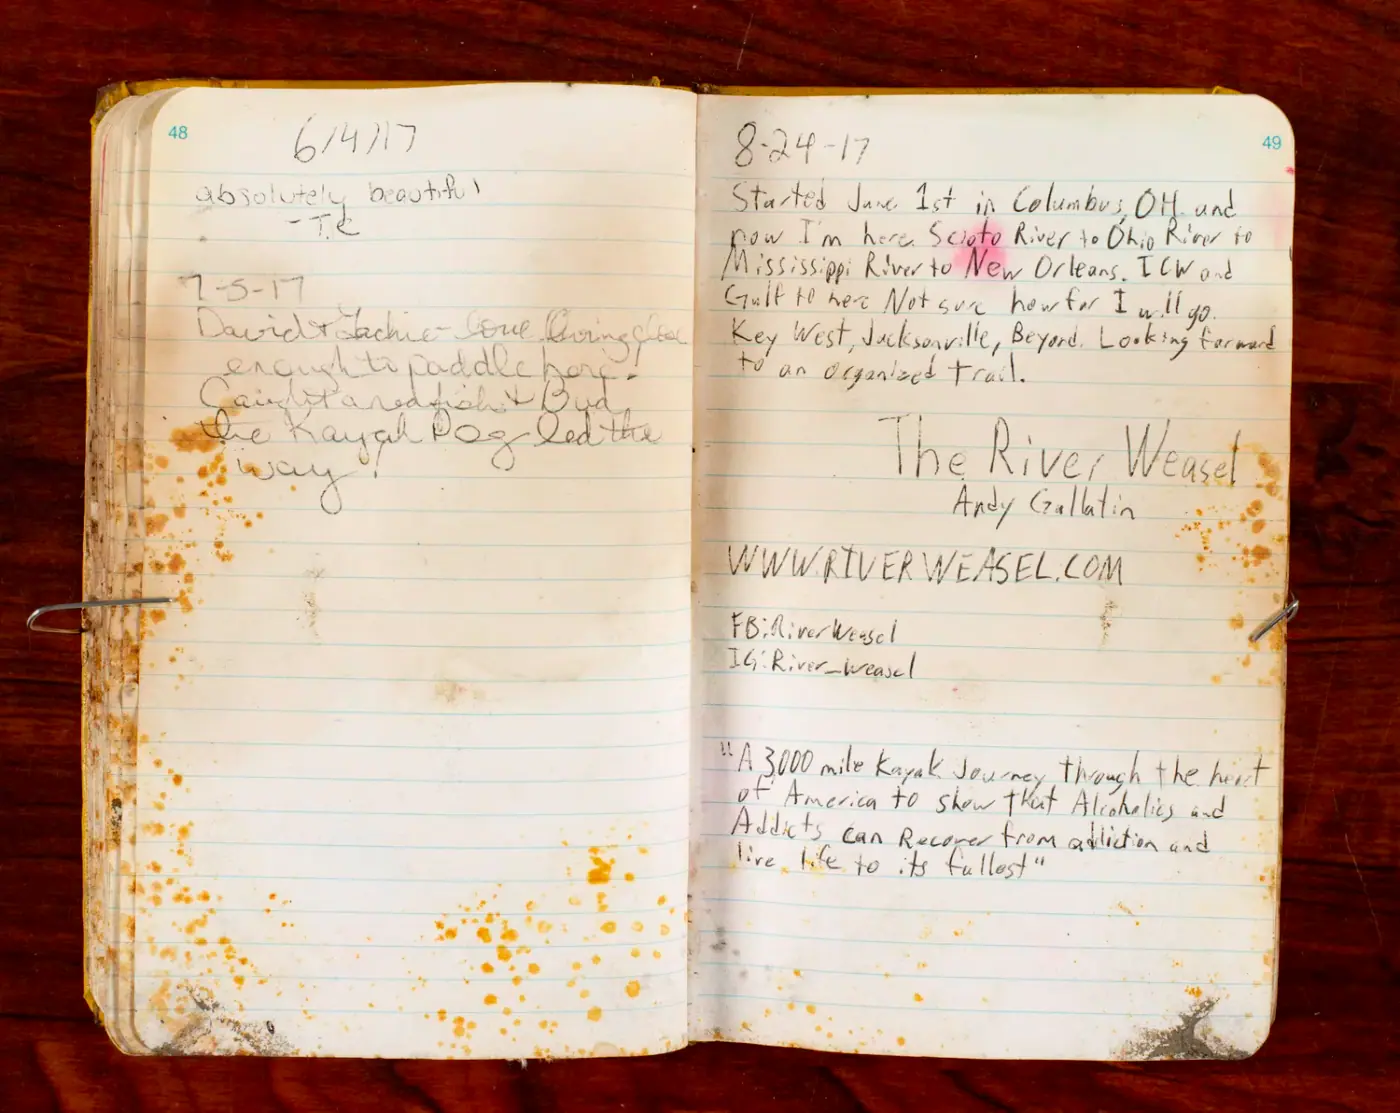 48
6/4/17
absolutely beautiful
-T.C
7-5-17
David + Jackie - love living close
enough to paddle here!
Caught a redfish & Bud
the Kayak Dog led the
way!
49
8-24-17
Started June 1st in Columbus, OH. and
now I'm here. Scioto River to Ohio River to
Mississippi River to New Orleans. ICW and
Gulf to here Not sure how far I will go.
Key West, Jacksonville, Beyond. Looking forward
to an organized trail.
The River Weasel
Andy Gallatin
WWW.RIVERWEASEL.COM
FB:RiverWeasel
IG:River_weasel
"A 3,000 mile Kayak Journey through the heart
of America to show that Alcoholics and
Addicts can Recover from addiction and
live life to its fullest"